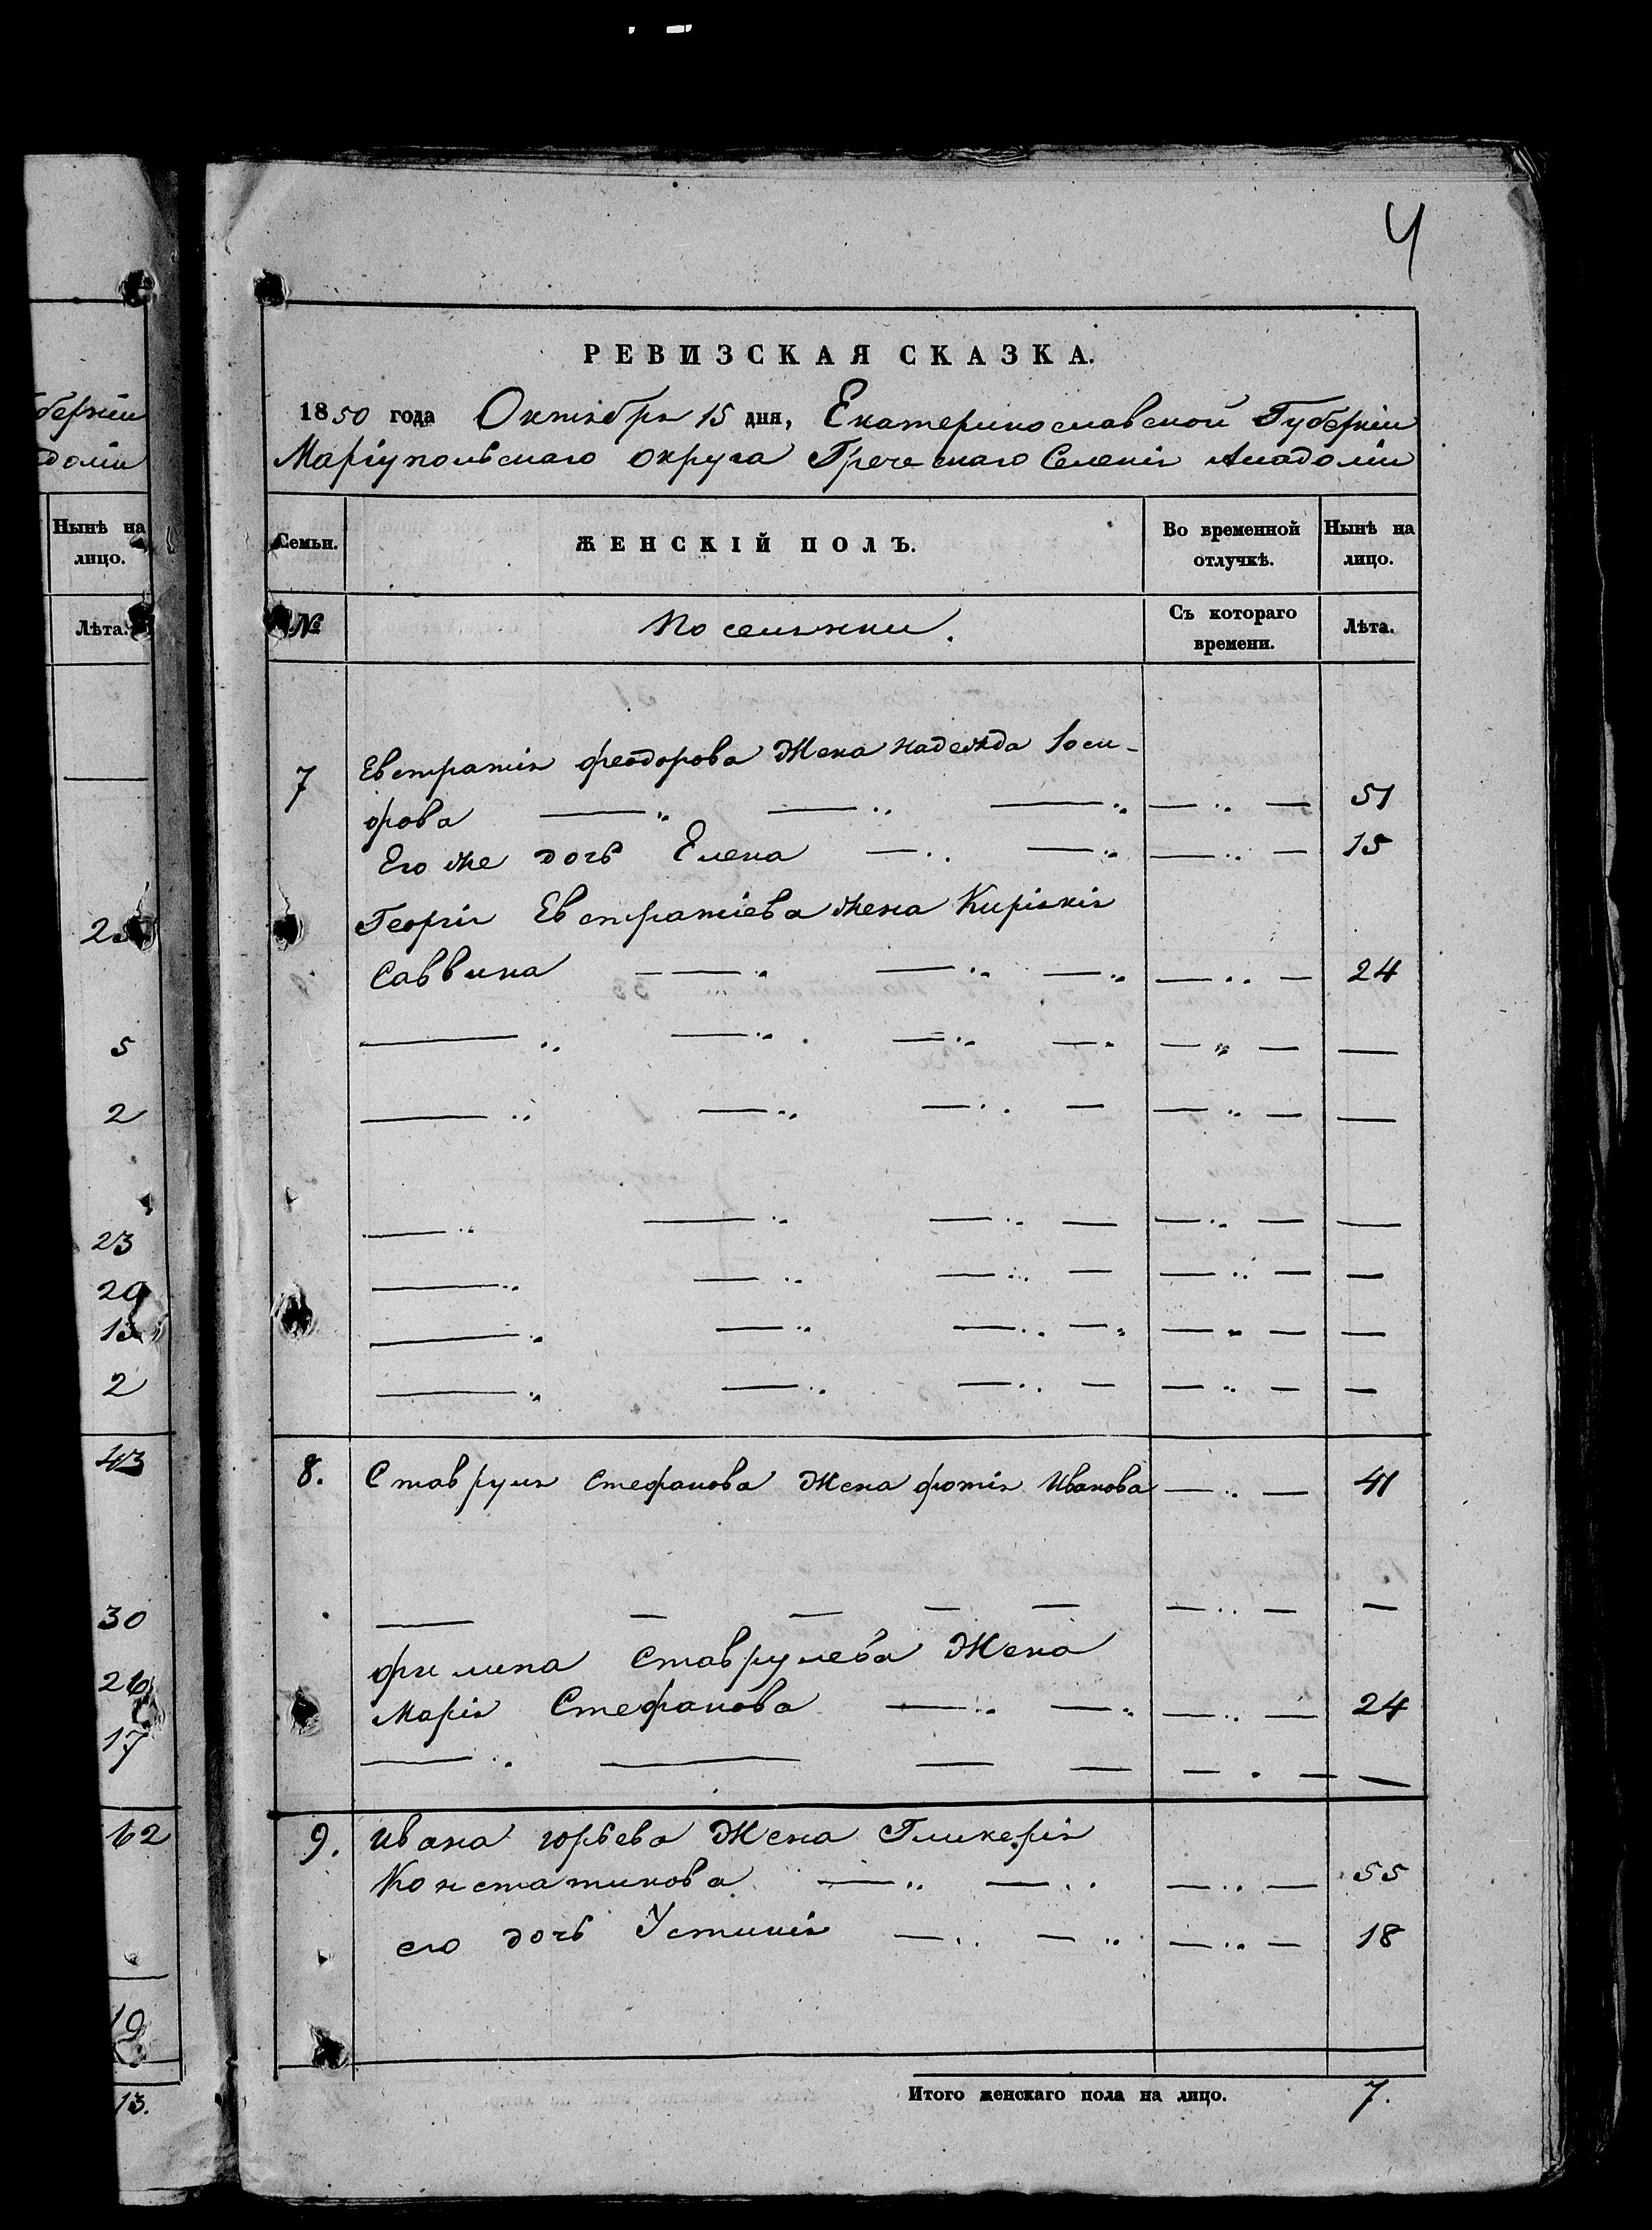 4
РЕВИЗСКАЯ СКАЗКА.
1850 года Октября 15 дня, Екатеринославской Губерніи
Маріупольскаго округа Греческаго Селенія Анадоліи
Семьи.
ЖЕНСКІЙ ПОЛЪ.
Во временной отлучкѣ.
Нынѣ на лицо.
№
Поселянки.
Съ котораго времени.
Лѣта.
7 Евстратія Феодорова жена Надежда Іоси-
фова — „ — „ — „ — „ — 51
Его же дочь Елена — „ — „ — „ — 15
Георгія Евстратіева жена Киріакія
Саввина — „ — „ — „ — „ — 24
8. Ставруля Стефанова жена Фотія Иванова — „ — 41
Филипа Ставрулева Жена
Марія Стефанова — „ — „ — „ — 24
9. Ивана Юрьева Жена Гликерія
Констатинова — „ — „ — „ — 55
его дочь Устинія — „ — „ — „ — 18
Итого женскаго пола на лицо. 7.
берніи
доліи
Нынѣ на
лицо.
Лѣта.
5
2
23
2
43
30
26
17
62
13.